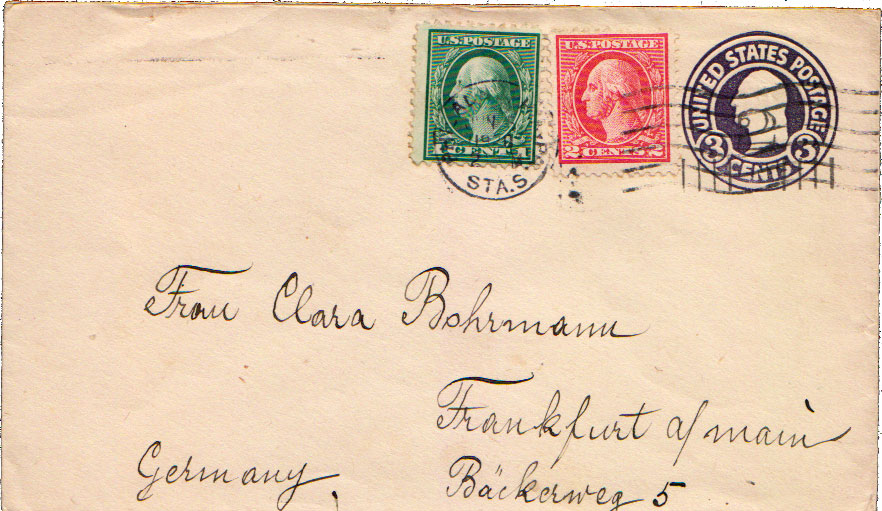 U.S. POSTAGE
U.S. POSTAGE
2 CENTS 2
UNITED STATES POSTAGE
3 CENTS 3
STA.S
Frau Clara Bohrmann
Frankfurt a/main
Germany
Bäckerweg 5